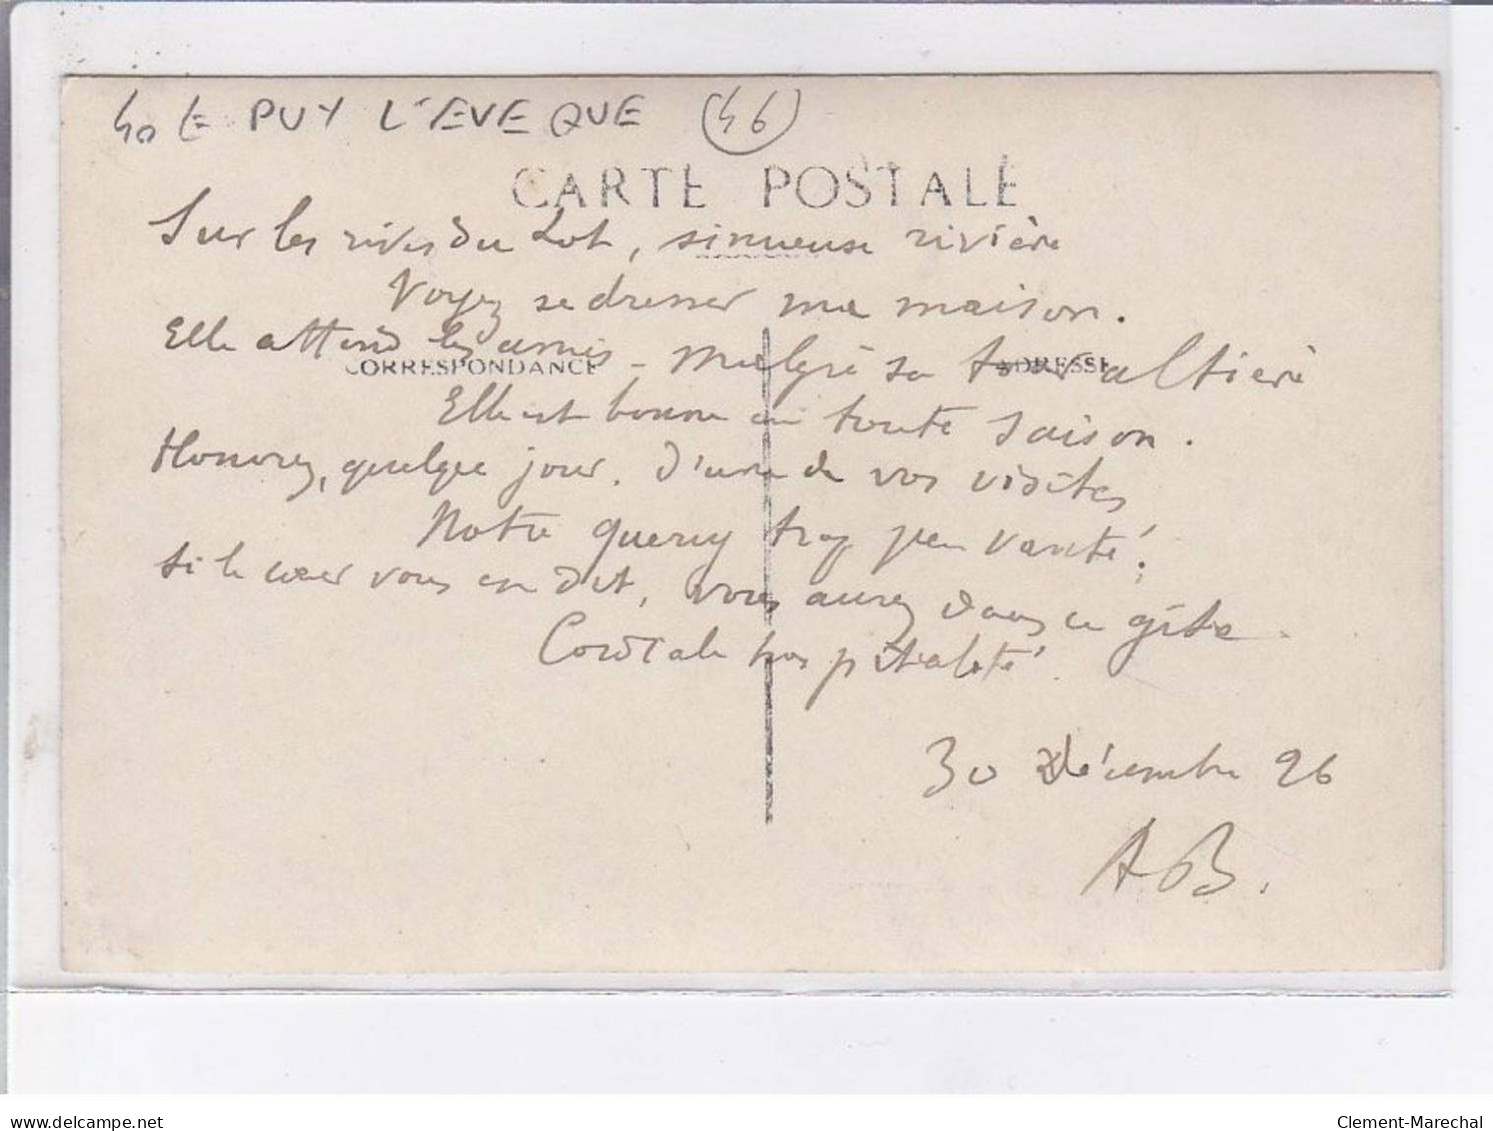 40 E PUY L'EVEQUE (46)
CARTE POSTALE
Sur les rives du Lot, sinueuse rivière
Voyez se dresser ma maison.
Elle attend les amis - Malgré sa tour altière
CORRESPONDANCE ADRESSE
Elle est bonne en toute saison.
Honorez, quelque jour, d'une de vos visites
Notre Quercy trop peu vanté!
Si le cœur vous en dit, vous aurez dans ce gîte
Cordiale hospitalité.
30 Décembre 26
AB.
delcampe.net
Clement-Marechal